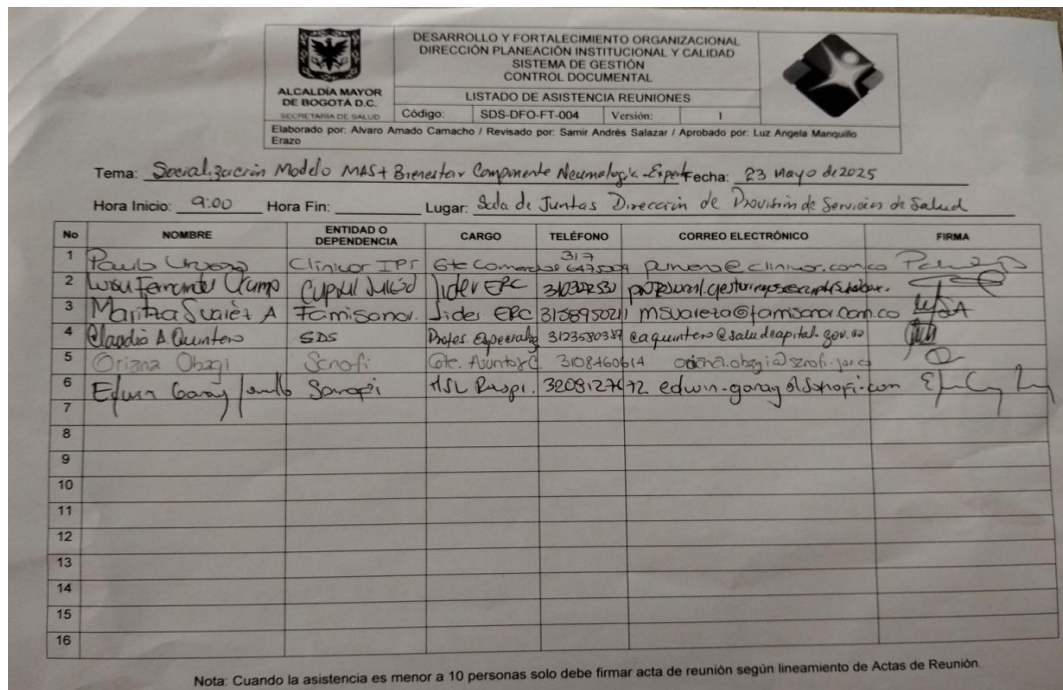 ALCALDÍA MAYOR
DE BOGOTÁ D.C.
SECRETARÍA DE SALUD
DESARROLLO Y FORTALECIMIENTO ORGANIZACIONAL
DIRECCIÓN PLANEACIÓN INSTITUCIONAL Y CALIDAD
SISTEMA DE GESTIÓN
CONTROL DOCUMENTAL
LISTADO DE ASISTENCIA REUNIONES
Código: SDS-DFO-FT-004 Versión: 1
Elaborado por: Alvaro Amado Camacho / Revisado por: Samir Andrés Salazar / Aprobado por: Luz Angela Manquillo
Erazo
Tema: Socialización Modelo MAS+ Bienestar Componente Neumología - Fecha: 23 Mayo de 2025
Hora Inicio: 9:00 Hora Fin: Lugar: Sala de Juntas Dirección de Provisión de Servicios de Salud
No NOMBRE ENTIDAD O DEPENDENCIA CARGO TELÉFONO CORREO ELECTRÓNICO FIRMA
1 Clinicor IPS Gte 317
2 Luisa Fernanda Lider EPC
3 Maritza Suarez A Famisanar. Lider EPC 3158950211 msuareza@famisanar.com.co
4 Claudia A. Quintero SDS Profes. 3123580387 @saludcapital.gov.co
5 Oriana Obagi Sanofi Gte. 3108460614
6 Edwin Garay Sanofi MSL 3208127472 edwin.garay@sanofi.com
7
8
9
10
11
12
13
14
15
16
Nota: Cuando la asistencia es menor a 10 personas solo debe firmar acta de reunión según lineamiento de Actas de Reunión.